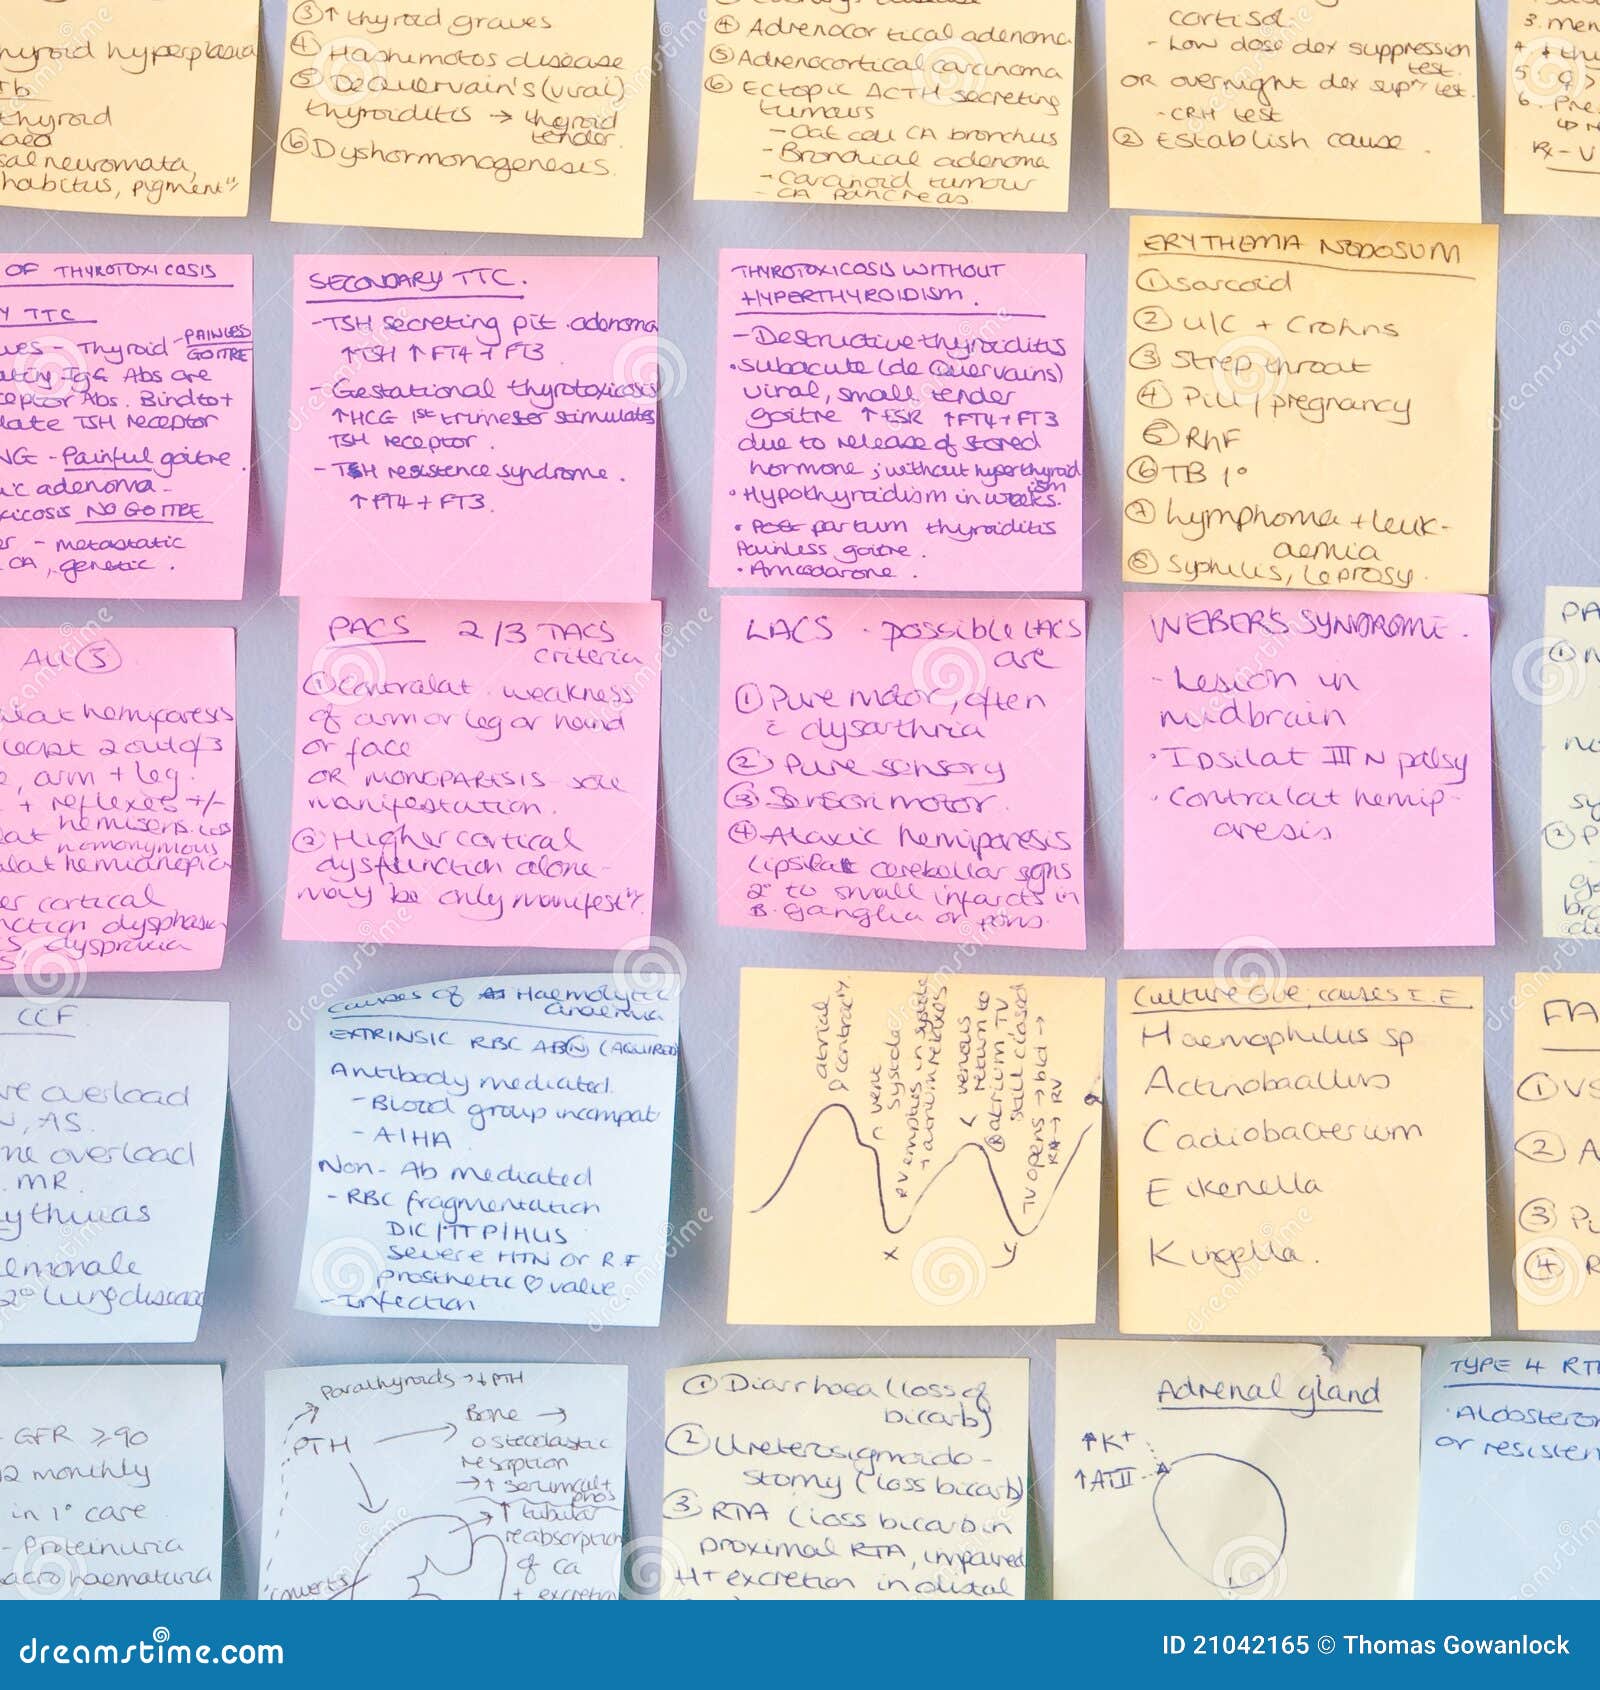 thyroid hyperplasia
thyroid
neuromata,
habitus, pigment^n
③ ↑ thyroid graves
④ Hashimotos disease
⑤ DeQuervain's (viral)
thyroiditis → thyroid
tender.
⑥ Dyshormonogenesis.
④ Adrenocortical adenoma
⑤ Adrenocortical carcinoma
⑥ Ectopic ACTH secreting
tumours
- Oat cell CA bronchus
- Bronchial adenoma
- Carcinoid tumour
- CA pancreas.
cortisol.
- Low dose dex suppression
test.
OR overnight dex sup^n test.
- CRH test
② Establish cause.
OF THYROTOXICOSIS
Y TTC
- Thyroid - PAINLESS
GOITRE
IgG Abs are
Abs. Bind to +
TSH receptor
- Painful goitre.
adenoma -
NO GOITRE
- metastatic
CA, genetic.
SECONDARY TTC.
- TSH secreting pit. adenoma
↑TSH ↑FT4 + FT3
- Gestational thyrotoxicosis
↑HCG 1st trimester stimulates
TSH receptor.
- TSH resistence syndrome.
↑FT4 + FT3.
THYROTOXICOSIS WITHOUT
HYPERTHYROIDISM.
- Destructive thyroiditis
• subacute (de Quervains)
viral, small tender
goitre ↑ESR ↑FT4 + FT3
due to release of stored
hormone; without hyperthyroid
ism
• Hypothyroidism in weeks.
• Post partum thyroiditis
Painless goitre.
• Amiodarone.
ERYTHEMA NODOSUM
① Sarcoid
② U/C + Crohns
③ Strep throat
④ Pill / pregnancy
⑤ RhF
⑥ TB 1°
⑦ Lymphoma + leuk-
aemia
⑧ Syphilis, leprosy.
All ③
hemiparesis
least 2 out of 3
, arm + leg.
+ reflexes +/-
hemisens. loss
homonymous
hemianopia
cortical
dysphasia
PACS 2/3 TACS
criteria
① Contralat. weakness
of arm or leg or hand
or face
OR MONOPARESIS - sole
manifestation.
② Higher cortical
dysfunction alone -
may be only manifest^n.
LACS - possible LACS
are
① Pure motor, often
c̄ dysarthria
② Pure sensory
③ Sensorimotor.
④ Ataxic hemiparesis
(ipsilat cerebellar signs
2° to small infarcts in
B. ganglia or pons.
WEBER'S SYNDROME.
- Lesion in
midbrain
• Ipsilat III N palsy
• Contralat hemip-
aresis
CCF
overload
, AS.
overload
MR.
2° lung disease
Causes of Haemolytic
anaemia
EXTRINSIC RBC ABⓃ (ACQUIRED)
Antibody mediated.
- Blood group incompat
- AIHA
Non-Ab mediated
- RBC fragmentation
DIC/TTP/HUS
severe HTN or RF
prosthetic ♡ valve
- Infection
atrial
contract^n
vent
systole
RV empties in systole
→ atrium relaxes
venous
return to
atrium TV
still closed
TV opens → bld →
RA → RV
x
y
Culture -ve causes I.E
Haemophilus sp
Actinobacillus
Cadiobacterium
Eikenella
Kingella.
FA
① VS
② A
③ Pu
④ R
GFR ≥90
12 monthly
in 1° care
- Proteinuria
haematuria
Parathyroids → ↓PTH
PTH
Bone →
osteoclastic
resorption
→ ↑ serum cal +
phos
↑ tubular
reabsorption
of ca
+ excretion
converts
① Diarrhoea (loss of
bicarb)
② Ureterosigmoido-
stomy (loss bicarb)
③ RTA (loss bicarb in
proximal RTA, impaired
H+ excretion in distal
Adrenal gland
↑K+
↑ATII
TYPE 4 RTA
• Aldosteron
or resisten
dreamstime.com
ID 21042165 © Thomas Gowanlock